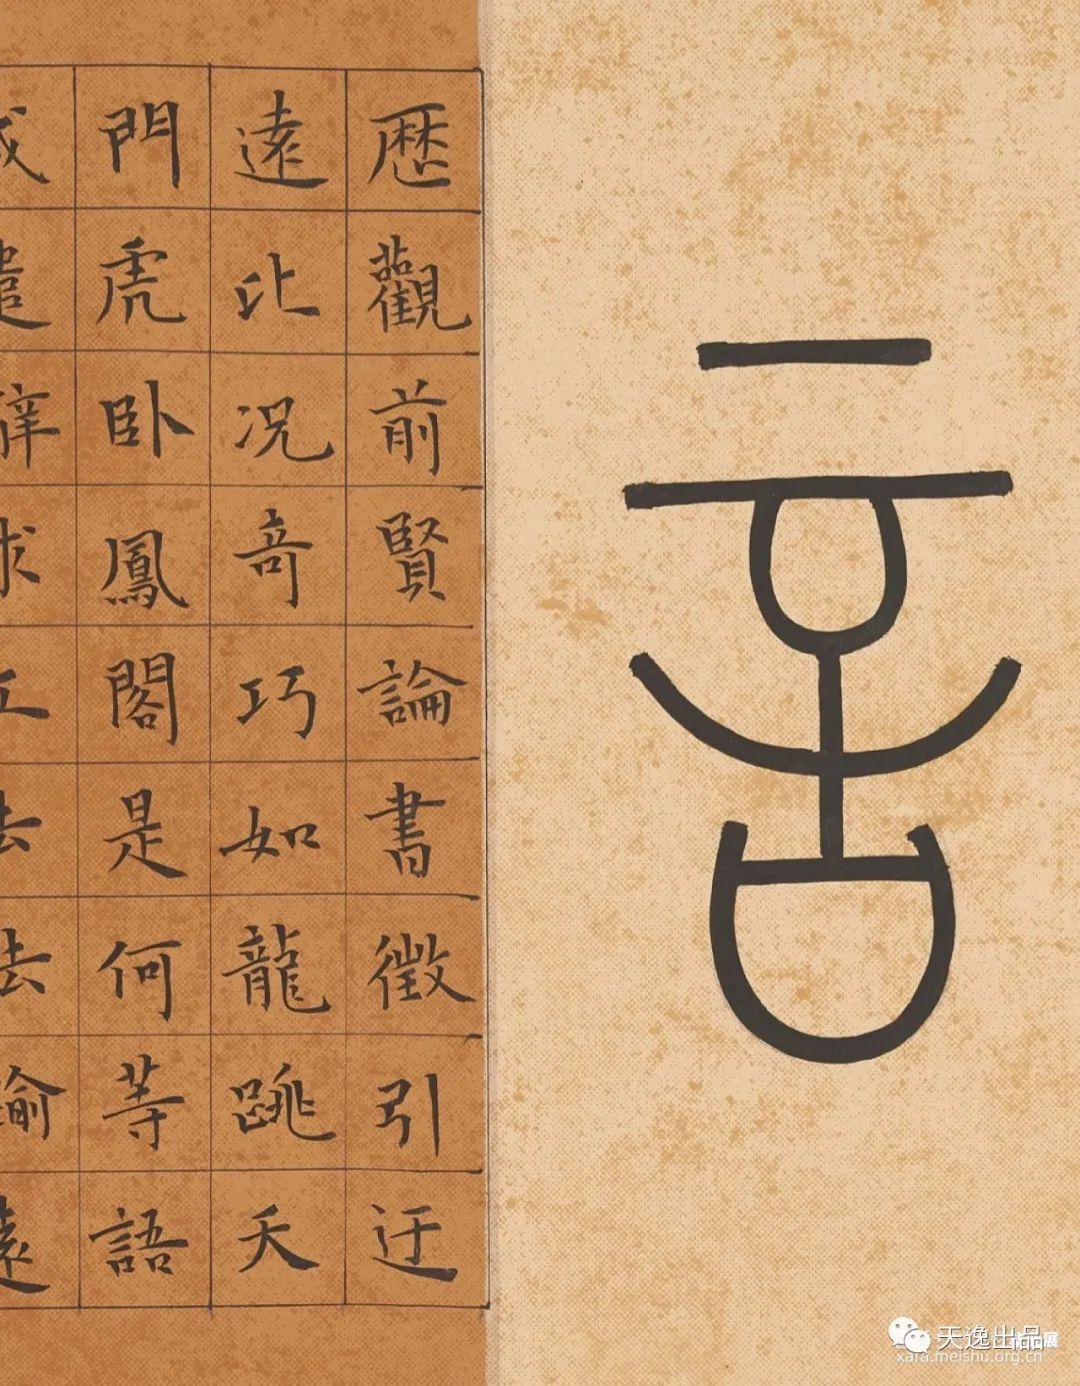 言
歴觀前賢論書徵引迂
遠比况奇巧如龍跳天
門虎卧鳳閣是何等語
天逸出品
xafa.meishu.org.cn